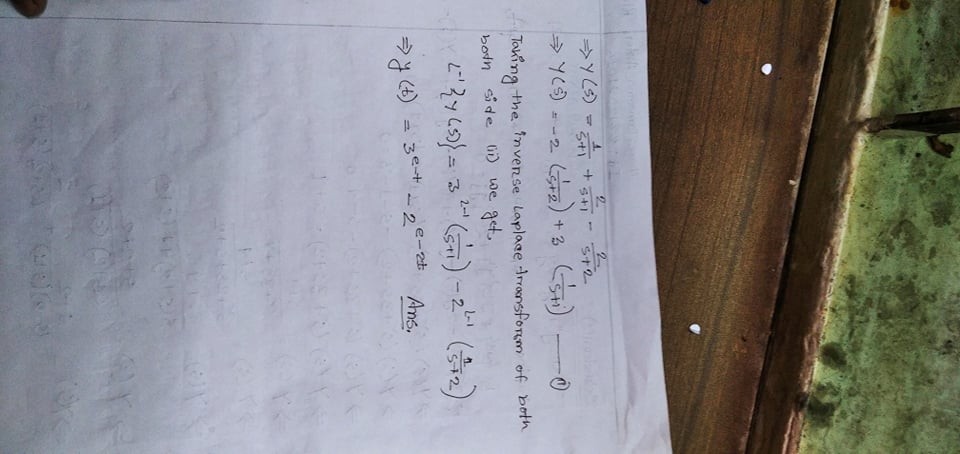 ⇒ Y(s) = 1/s+1 + 2/s+1 - 2/s+2
⇒ Y(s) = -2 (1/s+2) + 3 (1/s+1) —— (i)
Taking the inverse Laplace transform of both
both side (ii) we get,
L⁻¹{Y(s)} = 3 L⁻¹(1/s+1) - 2 L⁻¹(1/s+2)
⇒ y(t) = 3e⁻ᵗ - 2e⁻²ᵗ Ans.